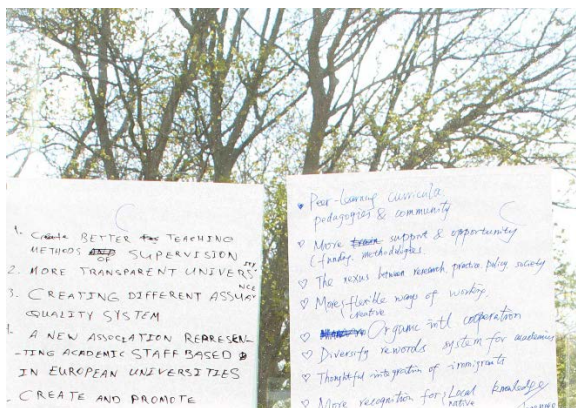 1. Create BETTER TEACHING
METHODS OF SUPERVISION
2. MORE TRANSPARENT UNIVERSITY
3. CREATING DIFFERENT ASSURANCE
QUALITY SYSTEM
A NEW ASSOCIATION REPRESEN-
-TING ACADEMIC STAFF BASED
IN EUROPEAN UNIVERSITIES
CREATE AND PROMOTE
Peer-learning curricula,
pedagogies & community
♡ More support & opportunity
(funding, methodologies
♡ The nexus between research, practice, policy society
♡ More flexible ways of working
creative
♡ Organic intl cooperation
♡ Diversify rewords system for academics
♡ Thoughtful integration of immigrants
♡ More recognition for Local knowledge
native